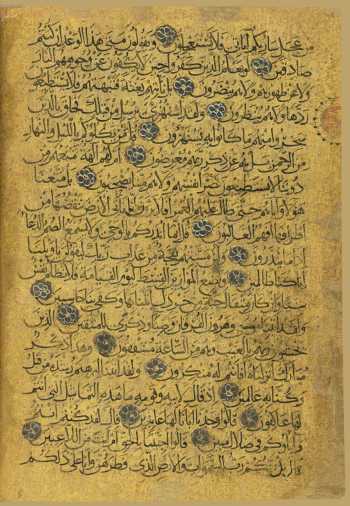 من عجل ساريكم آياتي فلا تستعجلون ويقولون متى هذا الوعد ان كنتم
صادقين لو يعلم الذين كفروا حين لا يكفون عن وجوههم النار
ولا عن ظهورهم ولا هم ينصرون بل تاتيهم بغتة فتبهتهم فلا يستطيعون
ردها ولا هم ينظرون ولقد استهزئ برسل من قبلك فحاق بالذين
سخروا منهم ما كانوا به يستهزؤن قل من يكلؤكم بالليل والنهار
من الرحمن بل هم عن ذكر ربهم معرضون ام لهم الهة تمنعهم من
دوننا لا يستطيعون نصر انفسهم ولا هم منا يصحبون بل متعنا
هؤلاء وآباءهم حتى طال عليهم العمر افلا يرون انا ناتي الارض ننقصها من
اطرافها افهم الغالبون قل انما انذركم بالوحي ولا يسمع الصم الدعاء
اذا ما ينذرون ولئن مستهم نفحة من عذاب ربك ليقولن يا ويلنا
انا كنا ظالمين ونضع الموازين القسط ليوم القيامة فلا تظلم نفس
شيئا وان كان مثقال حبة من خردل اتينا بها وكفى بنا حاسبين
ولقد آتينا موسى وهرون الفرقان وضياء وذكرا للمتقين الذين
يخشون ربهم بالغيب وهم من الساعة مشفقون وهذا ذكر
مبارك انزلناه افانتم له منكرون ولقد آتينا ابراهيم رشده من قبل
وكنا به عالمين اذ قال لابيه وقومه ما هذه التماثيل التي انتم
لها عاكفون قالوا وجدنا آباءنا لها عابدين قال لقد كنتم انتم
وآباؤكم في ضلال مبين قالوا اجئتنا بالحق ام انت من اللاعبين
قال بل ربكم رب السموات والارض الذي فطرهن وانا على ذلكم